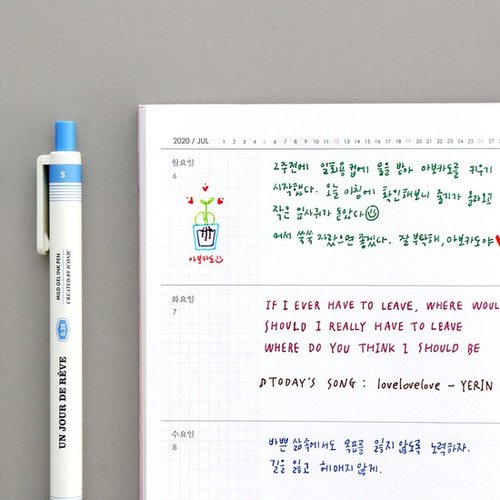 S
MILD GEL INK PEN
CREATED BY ICONIC
0.38
UN JOUR DE RÊVE
2020 / JUL 1 2 3 4 5 6 7 8 9 10 11 12 13 14 15 16 17 18 19 20 21 22 23 24 25 26 27
월요일
6
아보카도
2주전에 일회용컵에 물을 받아 아보카도를 키우기
시작했다. 오늘 아침에 확인해보니 줄기가 올라오고
작은 잎사귀가 돋았다
어서 쑥쑥 자랐으면 좋겠다. 잘 부탁해, 아보카도야
화요일
7
IF I EVER HAVE TO LEAVE, WHERE WOUL
SHOULD I REALLY HAVE TO LEAVE
WHERE DO YOU THINK I SHOULD BE
♪TODAY'S SONG : lovelovelove - YERIN
수요일
8
바쁜 삶속에서도 목표를 잃지 않도록 노력하자.
길을 잃고 헤매지 않게.